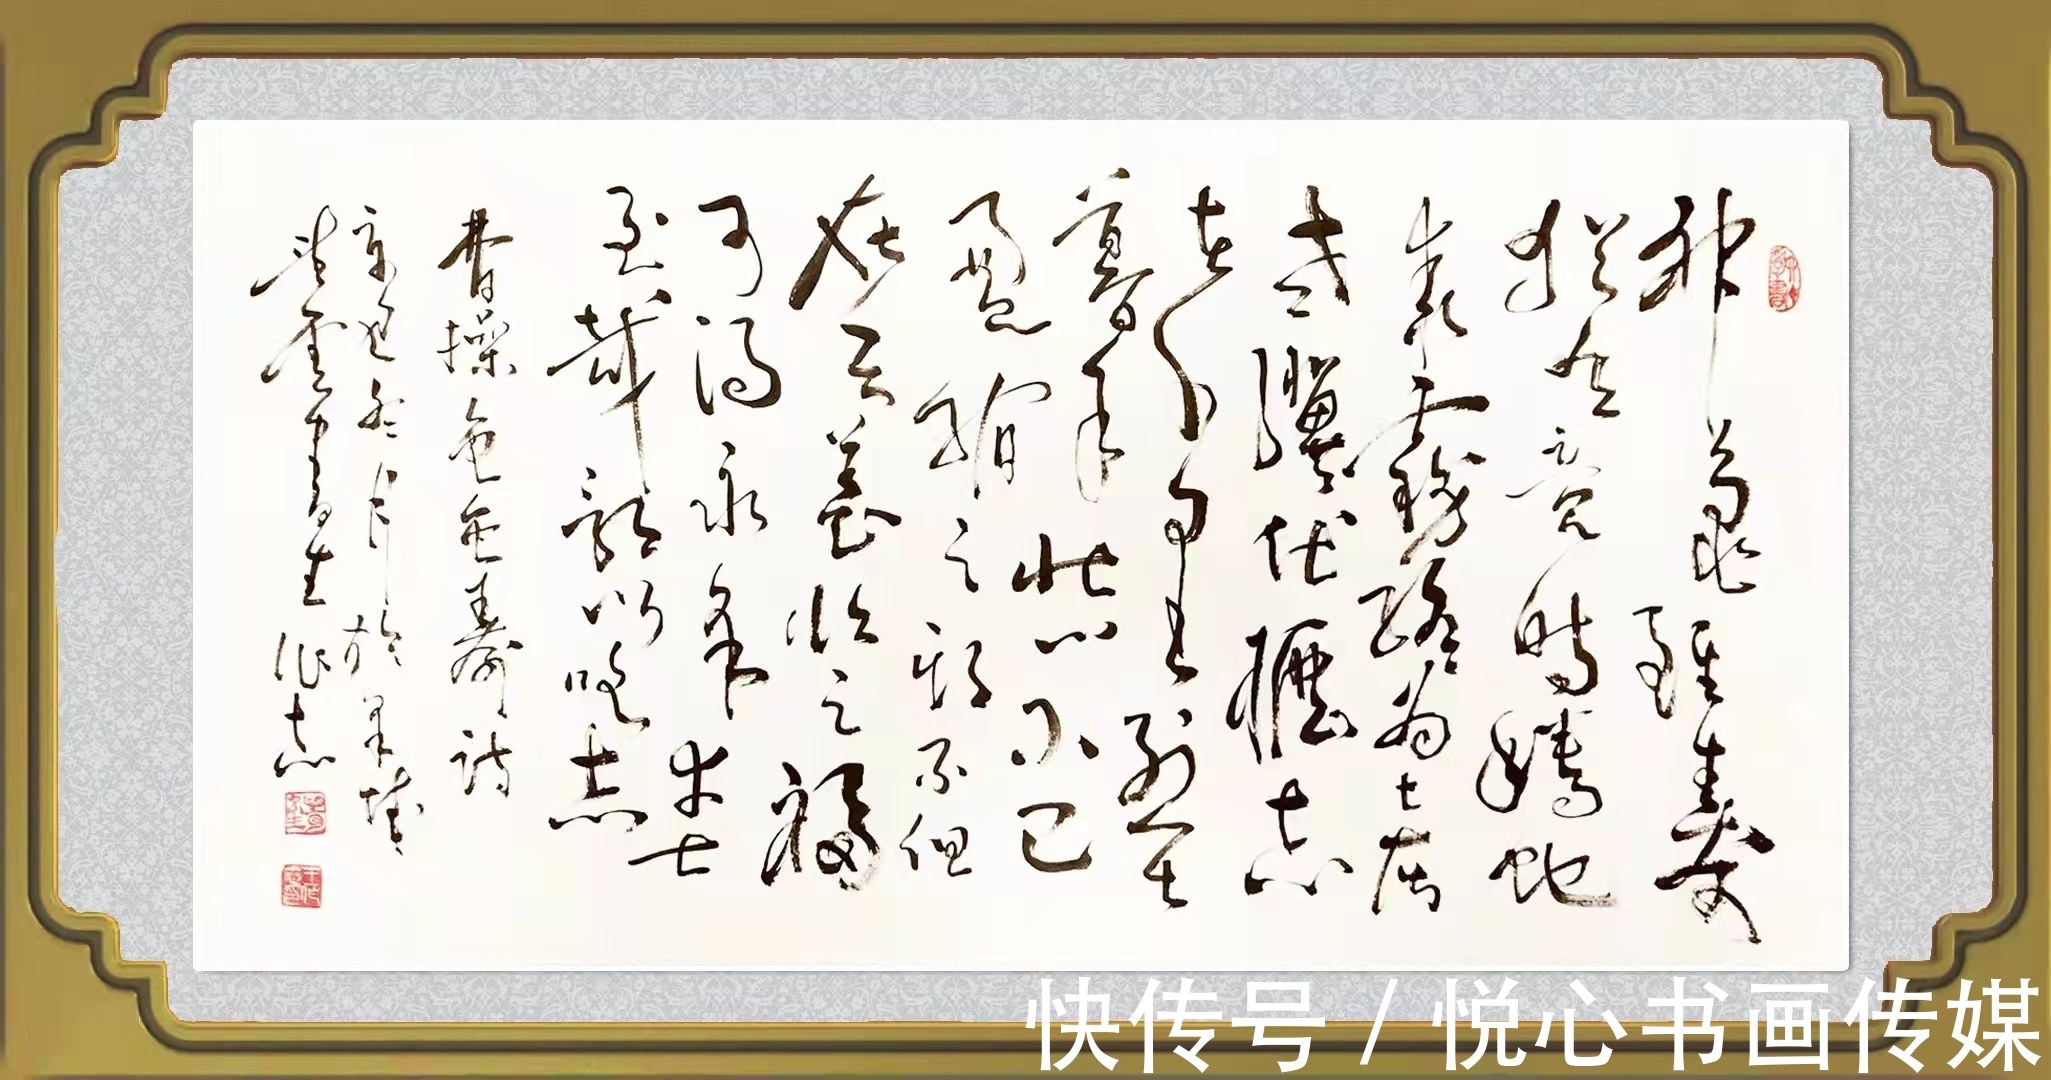 神龜雖壽
猶有竟時騰蛇
乘霧終為土灰
老驥伏櫪志
在千里烈士
暮年壯心不已
盈縮之期不但
在天養怡之福
可得永年幸甚
至哉歌以詠志
曹操龜雖壽詩
辛丑冬月於羊城
雲書生作志
快传号 / 悦心书画传媒